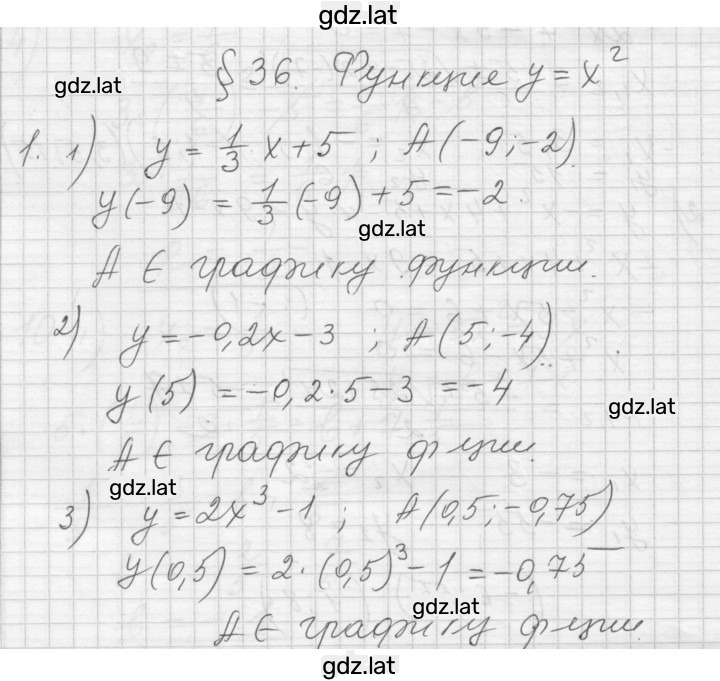 gdz.lat
§ 36. Функция y = x²
gdz.lat
1. 1) y = 1/3 x + 5 ; A(-9; -2).
y(-9) = 1/3 (-9) + 5 = -2.
gdz.lat
A ∈ графику функции.
2) y = -0,2x - 3 ; A(5; -4).
y(5) = -0,2·5 - 3 = -4
gdz.lat
A ∈ графику ф-ции.
gdz.lat
3) y = 2x³ - 1 ; A(0,5; -0,75)
y(0,5) = 2·(0,5)³ - 1 = -0,75
gdz.lat
A ∈ графику ф-ции.
gdz.lat